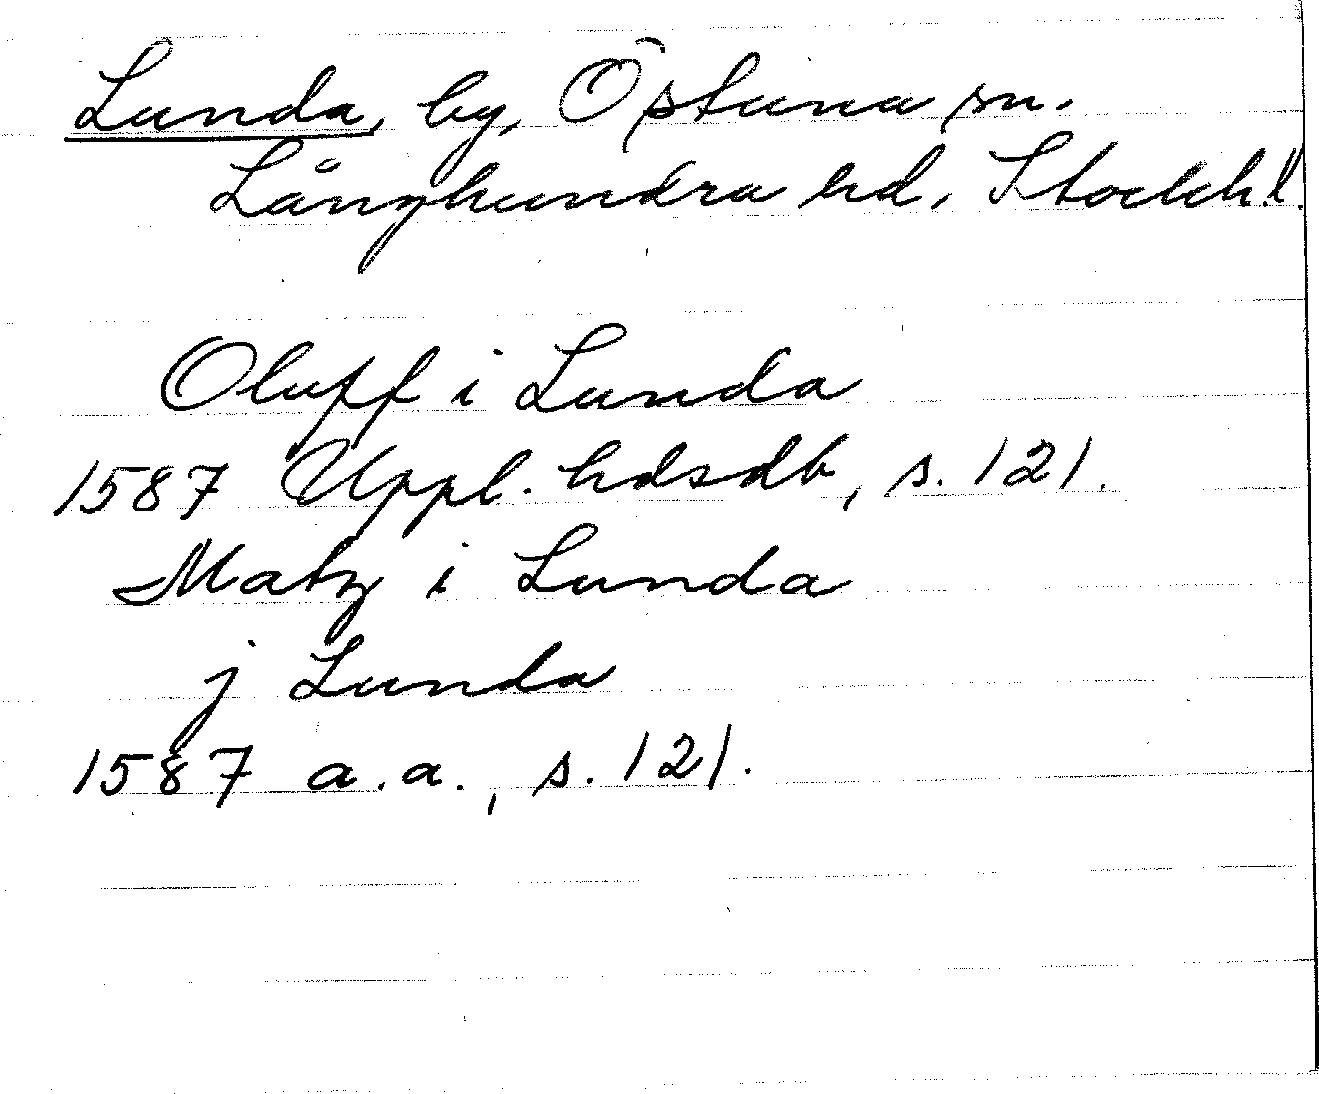 Lunda, by, Östuna sn.
Långhundra hd, Stockh.l.
Oluff i Lunda
1587 Uppl. hdsdb, s. 121.
Matz i Lunda
j Lunda
1587 a.a., s. 121.